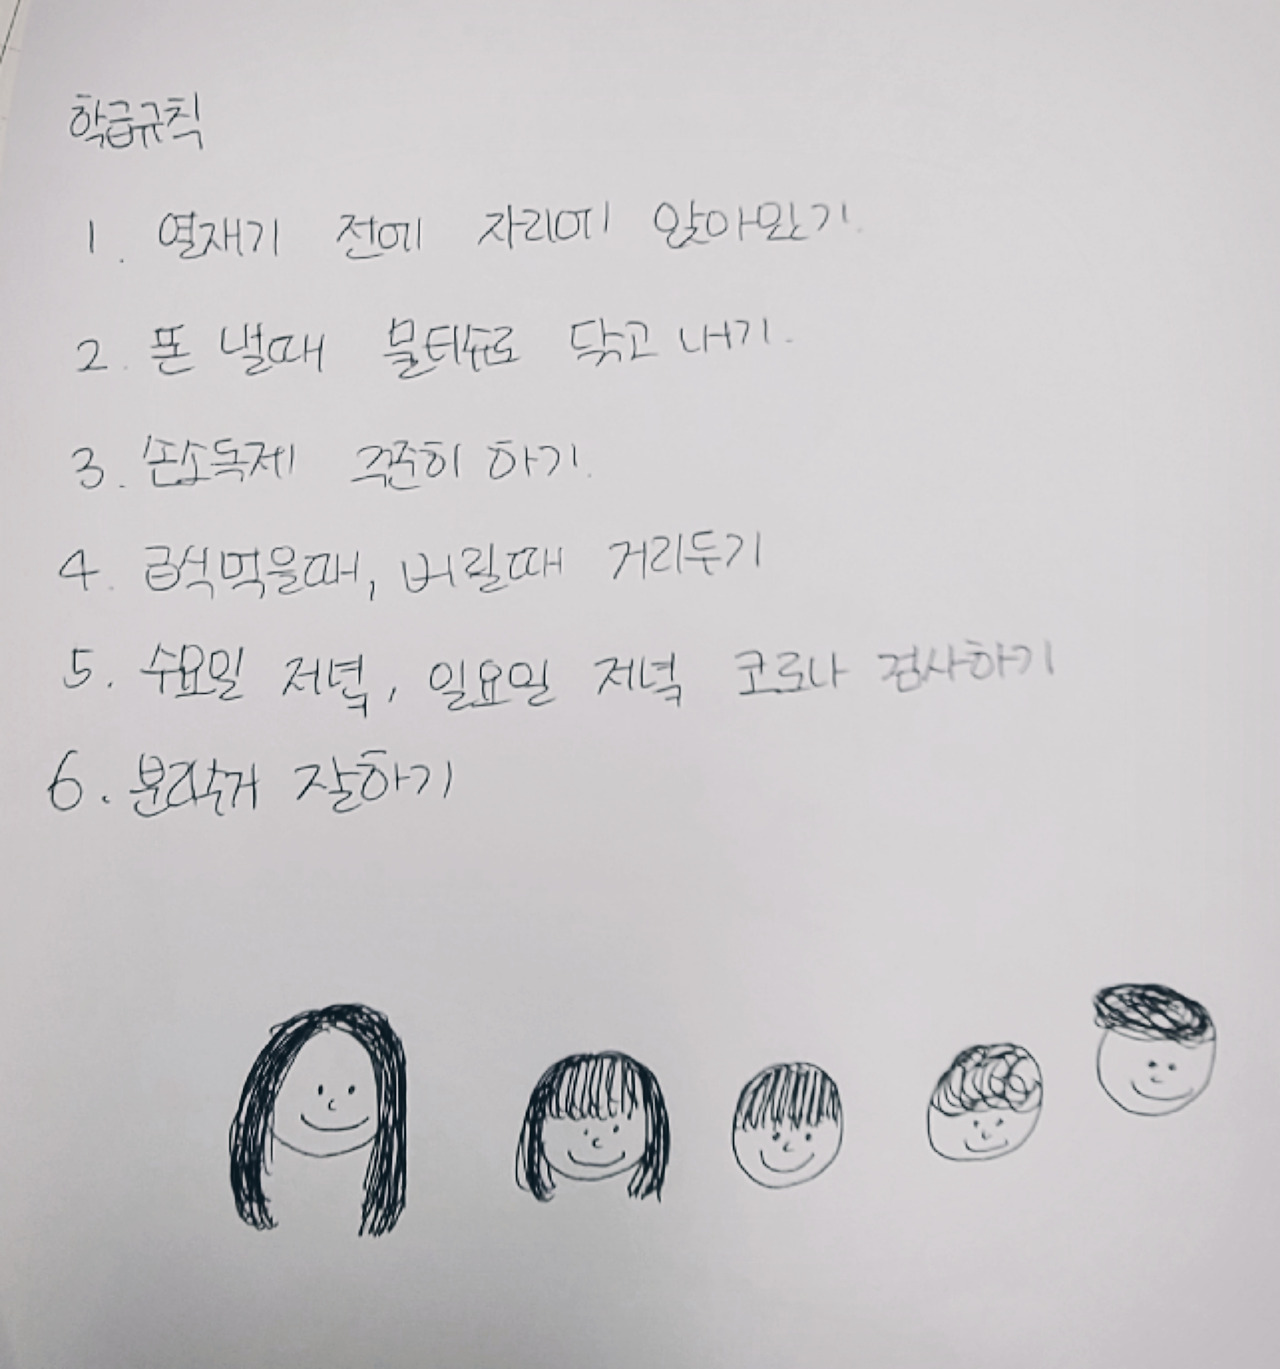 학급규칙
1. 열재기 전에 자리에 앉아있기.
2. 폰 낼때 물티슈로 닦고 내기.
3. 손소독제 꾸준히 하기.
4. 급식먹을때, 버릴때 거리두기
5. 수요일 저녁, 일요일 저녁 코로나 검사하기
6. 분리수거 잘하기